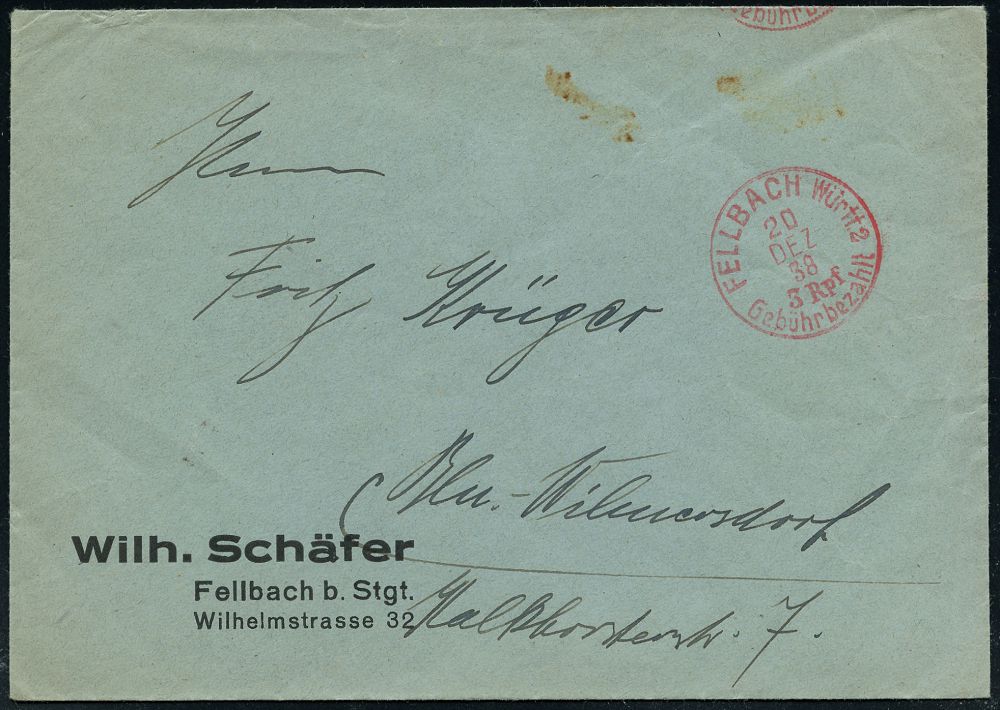 Gebühr
FELLBACH Württ. 2
20
DEZ
38
3 Rpf
Gebührbezahlt
Herrn
Fritz Krüger
Bln.-Wilmersdorf
Wilh. Schäfer
Fellbach b. Stgt.
Wilhelmstrasse 32
7.